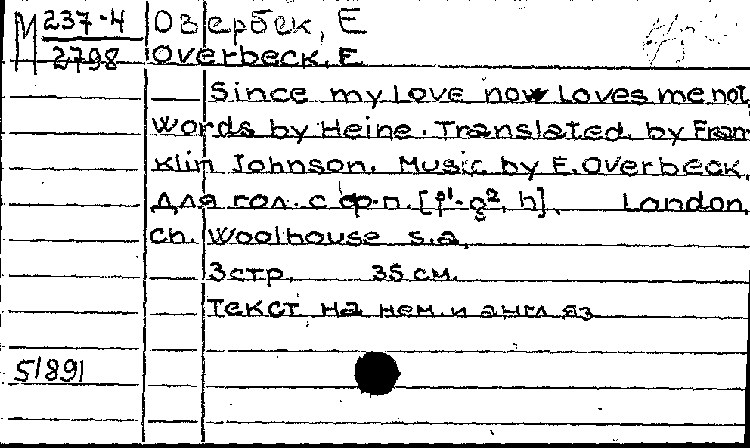 М 237-4
2798
Озербек, Е
Overbeck, E
Since my Love now Loves me not.
Words by Heine. Translated by Fran
klin Johnson. Music by E. Overbeck.
Для гол. с ф-п. [f¹-g², h]. London,
Ch. Woolhouse s.a.
3 стр. 35 см.
Текст на нем. и англ яз
51891